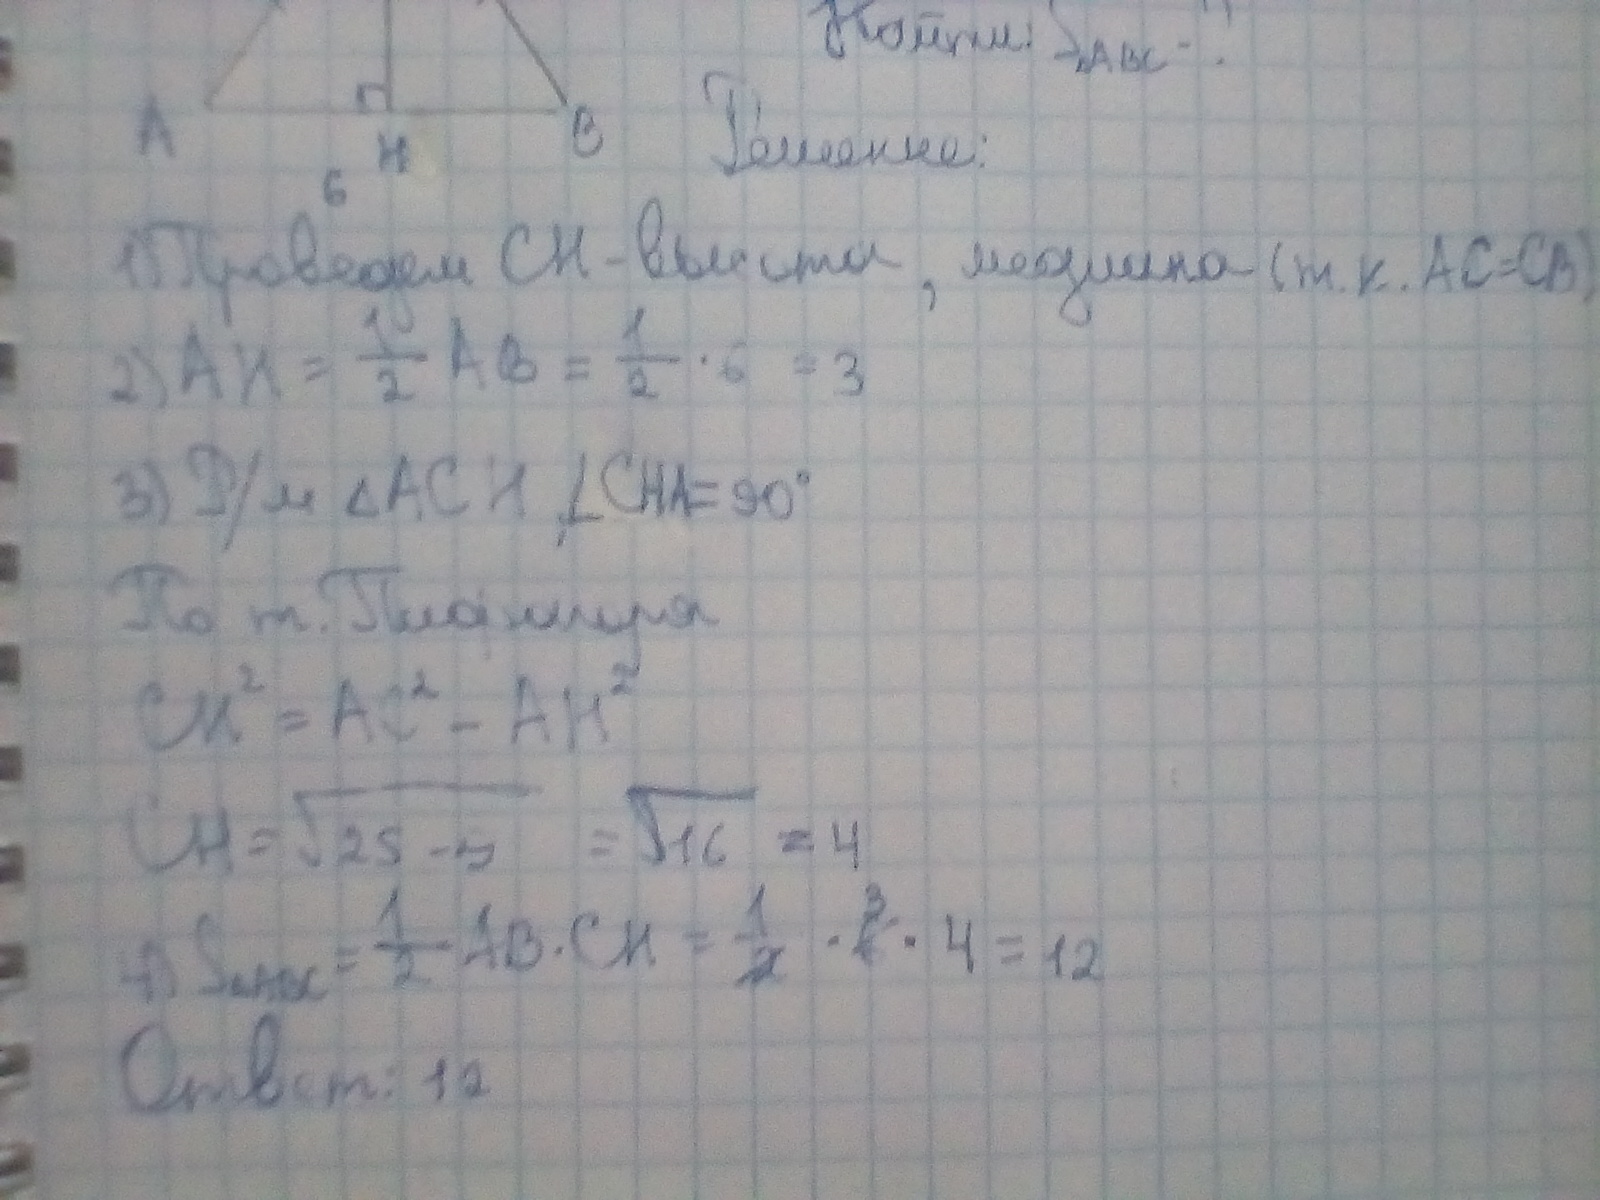 Найти: S△ABC - ?
A H B
Решение:
6
1) Проведем CH - высота, медиана (т.к. AC=CB)
2) AH = 1/2 AB = 1/2 · 6 = 3
3) Р/м △ACH, ∠CHA=90°
По т. Пифагора
CH² = AC² - AH²
CH = √25 - 9 = √16 = 4
4) S△ABC = 1/2 AB · CH = 1/2 · 6 3 · 4 = 12
Ответ: 12